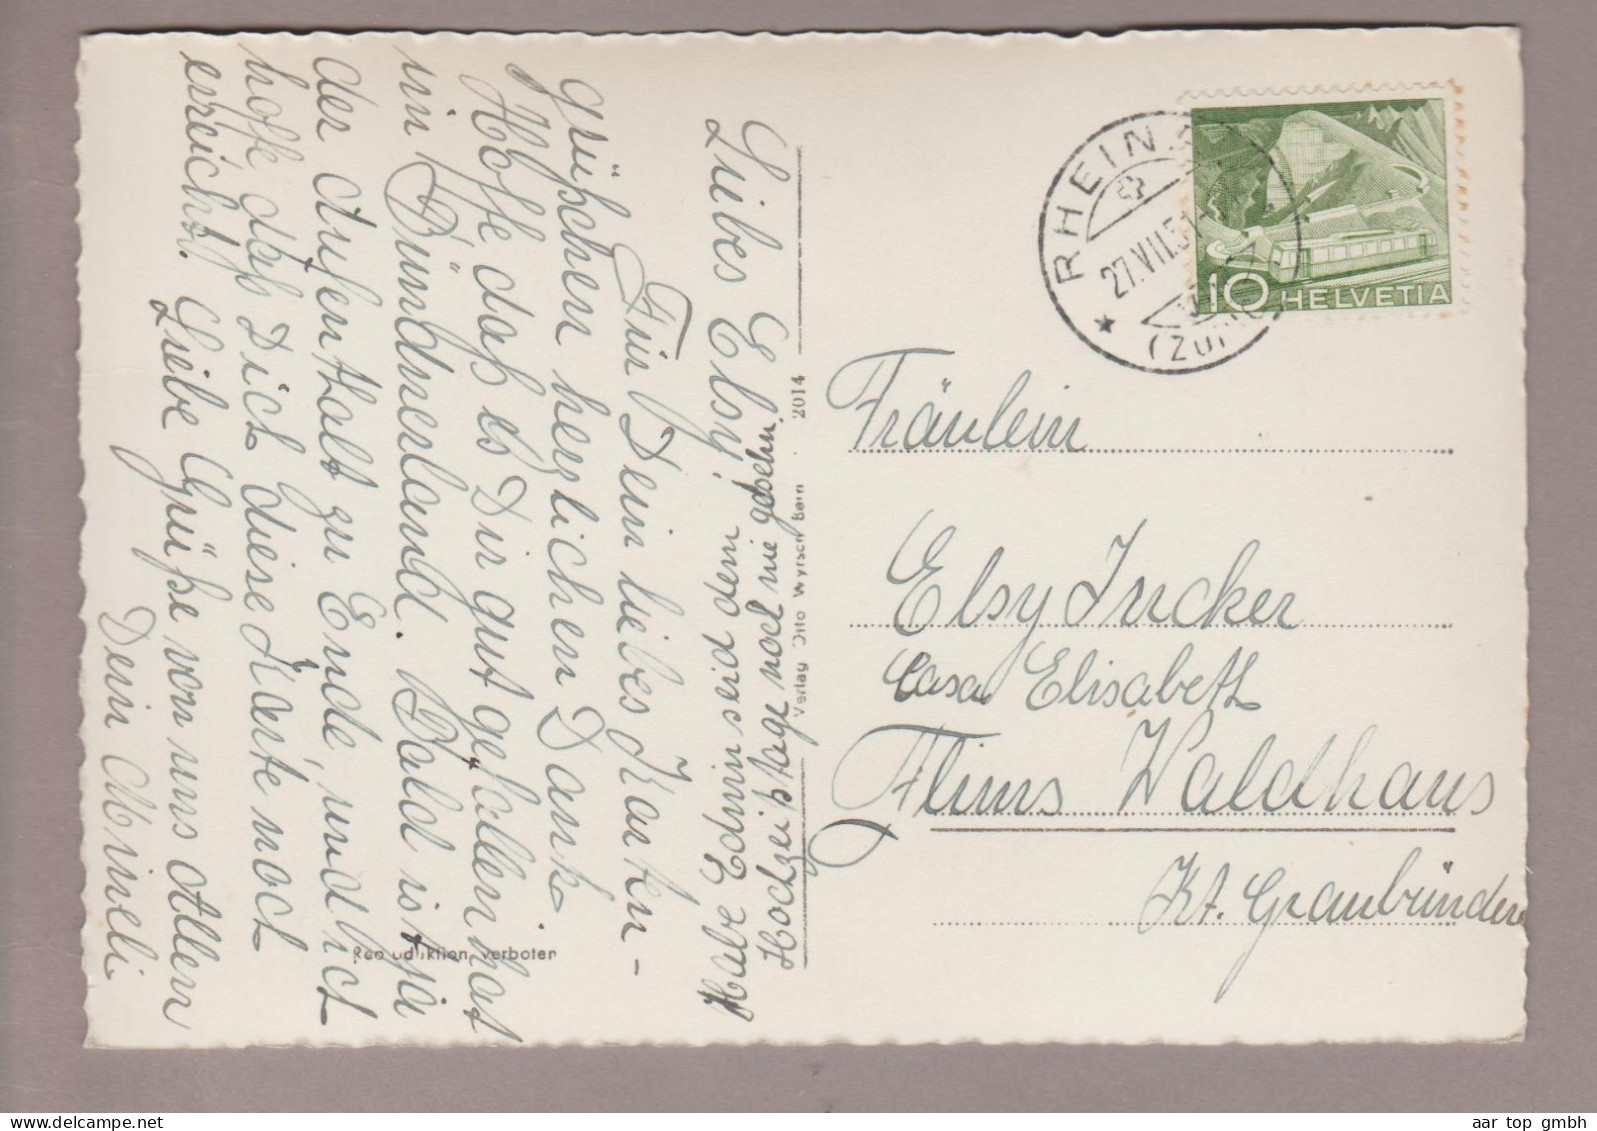 Liebes Elsy!
Habe Edwin seid dem
Hochzeitstage noch nie gesehn.
Für Dein liebes Karten-
grüßchen herzlichen Dank.
Hoffe daß es Dir gut gefallen hat
im Bündnerland. Bald ist ja
der Aufenthalt zu Ende, und ich
hoffe daß Dich diese Karte noch
erreicht. Liebe Grüße von uns Allen
Dein Mineli
Reproduktion verboten
Verlag Otto Wyrsch Bern 2014
RHEINAU
27.VII.51
(ZÜRICH)
10 HELVETIA
Fräulein
Elsy Jucker
Casa Elisabeth
Flims Waldhaus
Kt. Graubünden
aar top gmbh